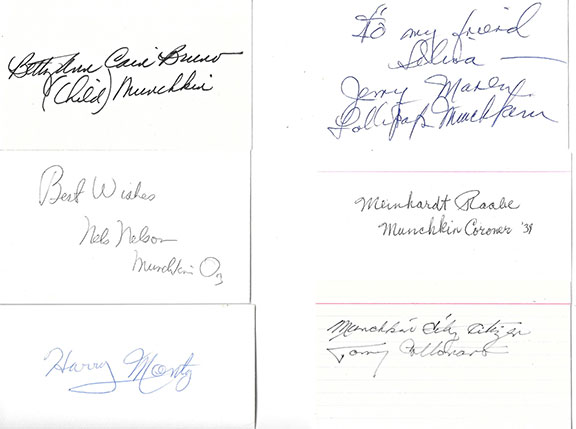 Betty Ann Cain Bruno
(Child) Munchkin
To my friend
Selina
Jerry Maren
Lollipop Munchkin
Best Wishes
Nels Nelson
Munchkin Oz
Meinhardt Raabe
Munchkin Coroner '39
Harry Monty
Munchkin City Citizen
Tommy Cottonaro